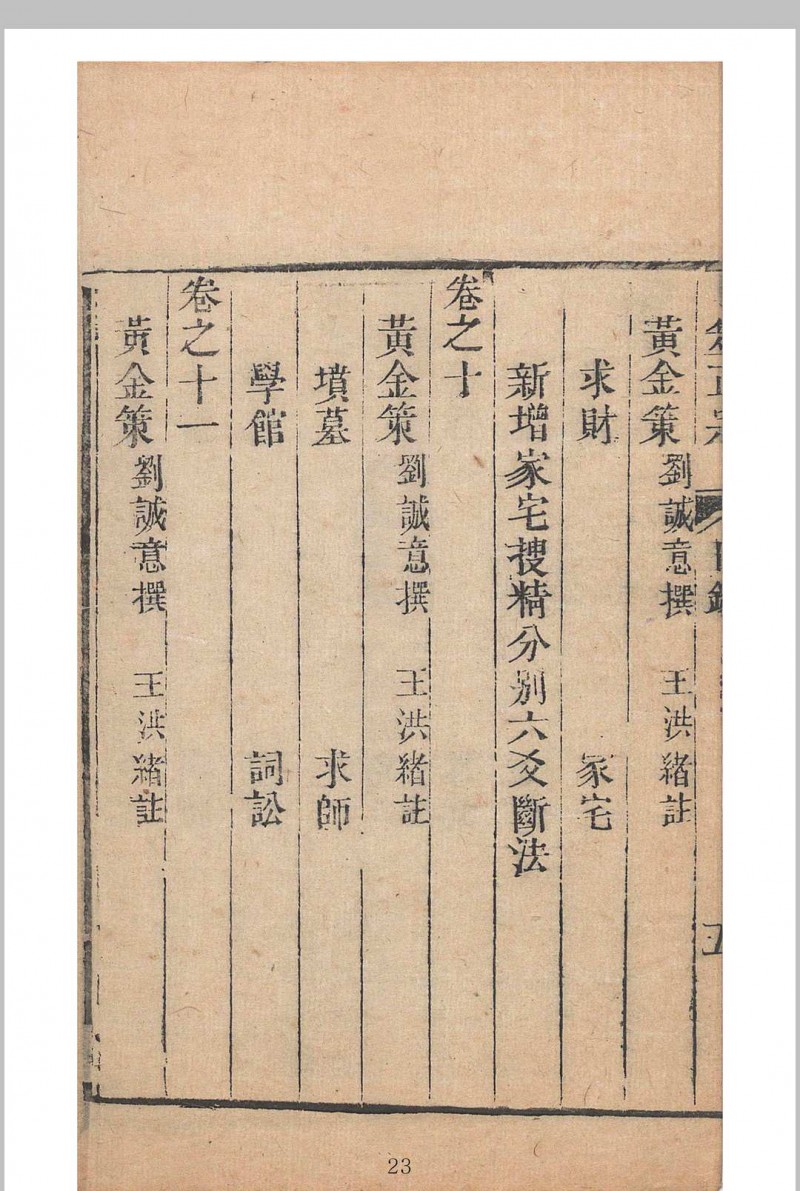 黃金策 劉誠意撰 王洪緒註
求財 家宅
新增家宅搜精分別六爻斷法
卷之十
黃金策 劉誠意撰 王洪緒註
墳墓 求師
學館 詞訟
卷之十一
黃金策 劉誠意撰 王洪緒註
23